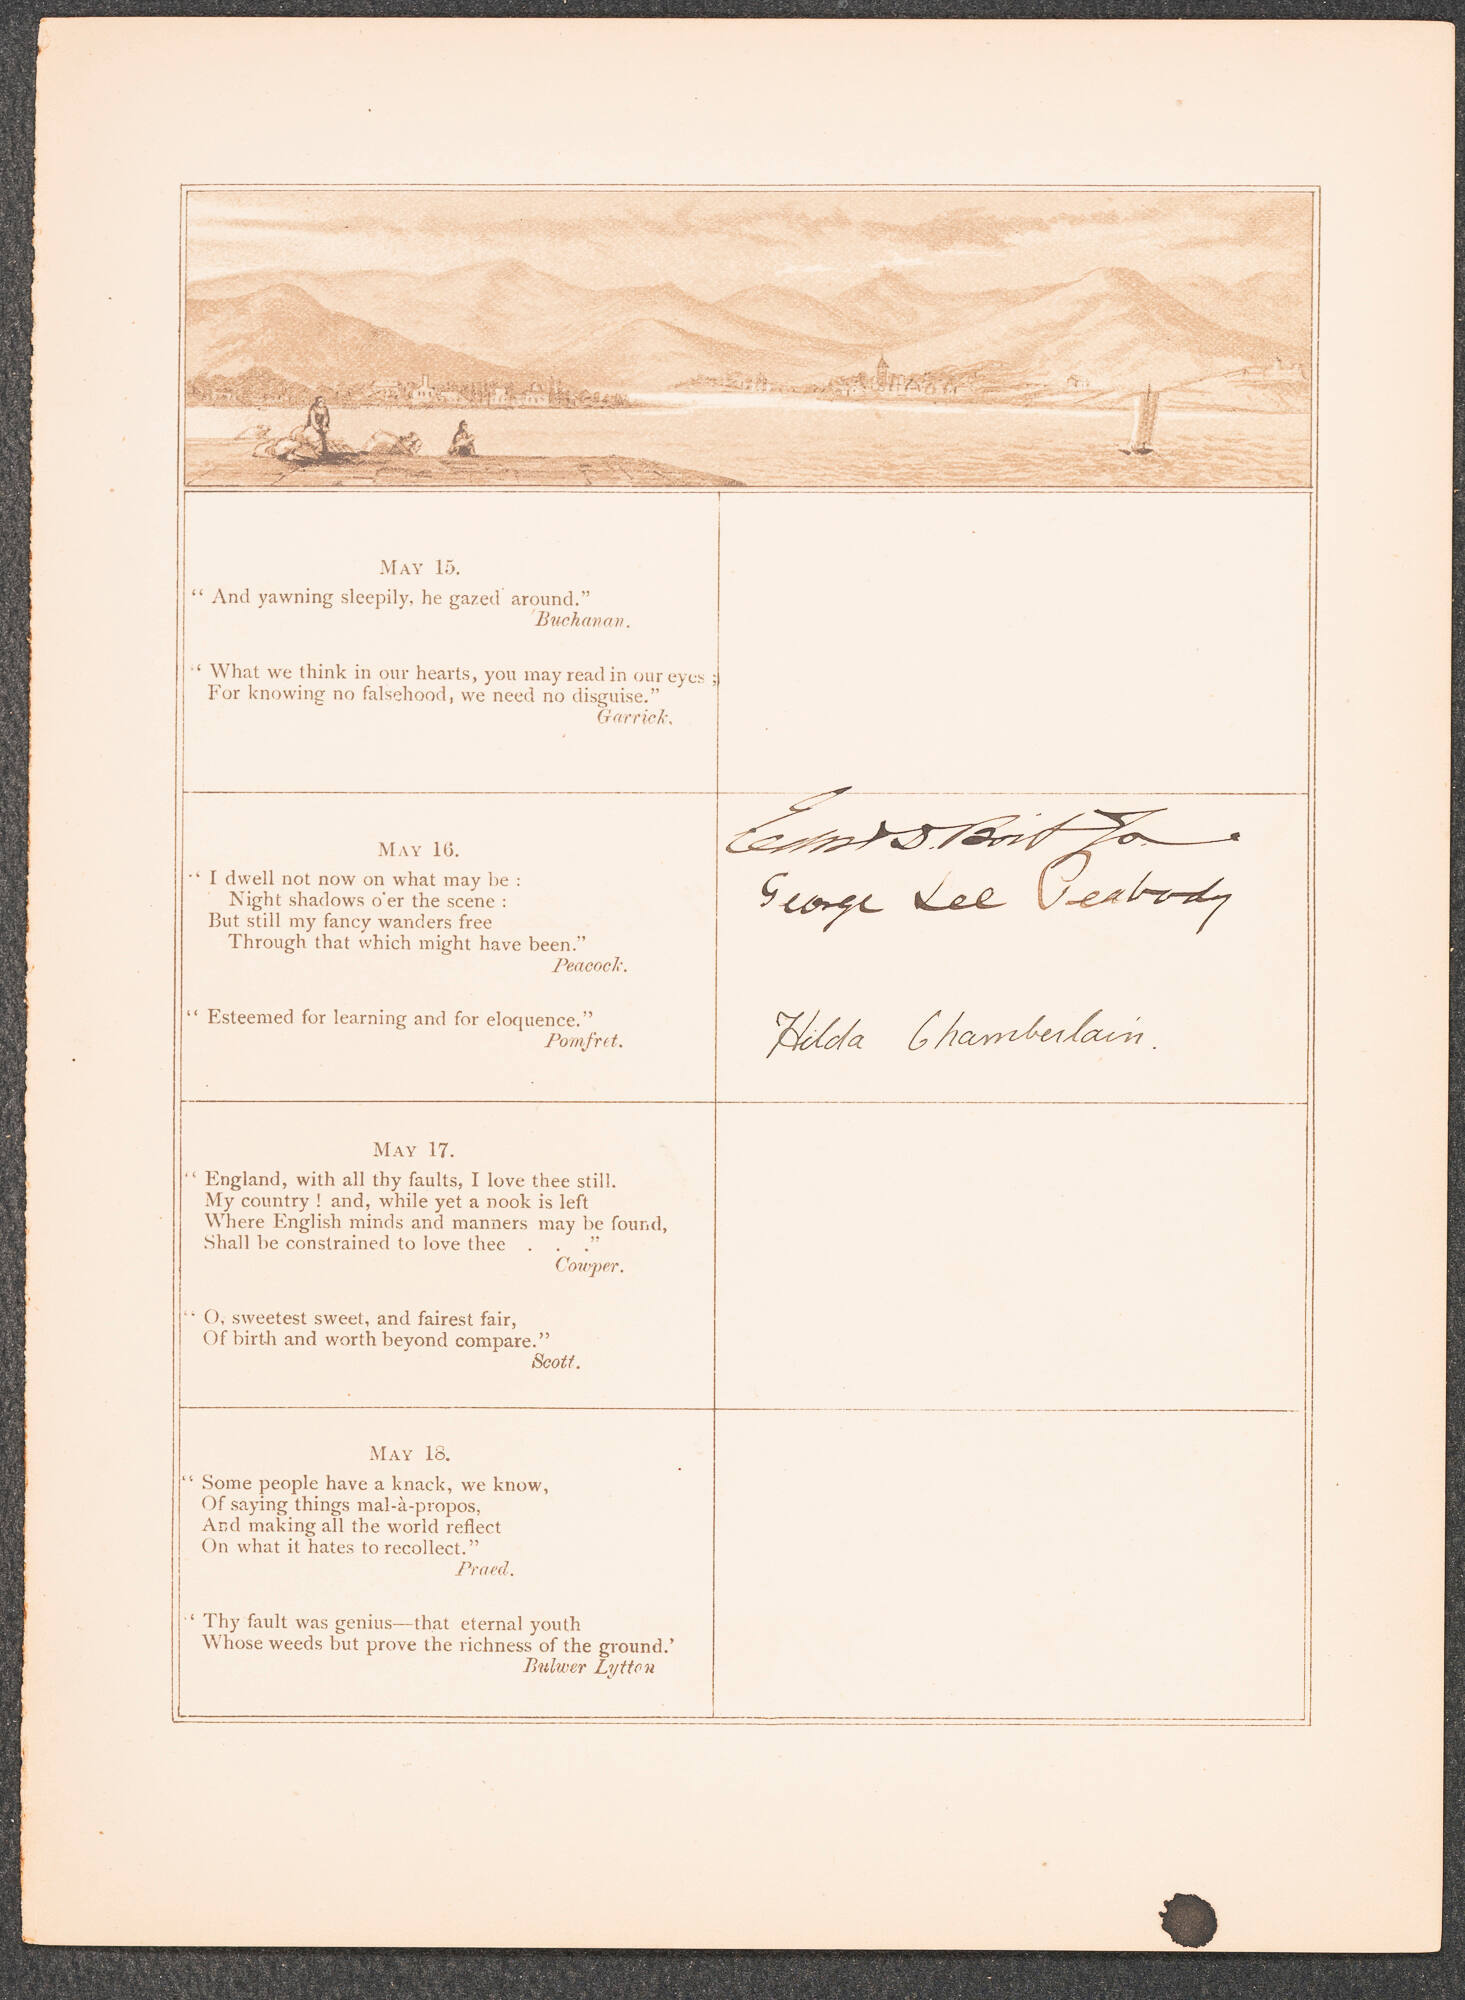 MAY 15.
“ And yawning sleepily, he gazed around.”
Buchanan.
“ What we think in our hearts, you may read in our eyes ;
For knowing no falsehood, we need no disguise.”
Garrick.
MAY 16.
“ I dwell not now on what may be :
Night shadows o'er the scene :
But still my fancy wanders free
Through that which might have been.”
Peacock.
“ Esteemed for learning and for eloquence.”
Pomfret.
Edwd D. Boit Jr.
George Lee Peabody
Hilda Chamberlain.
MAY 17.
“ England, with all thy faults, I love thee still.
My country ! and, while yet a nook is left
Where English minds and manners may be found,
Shall be constrained to love thee . . .”
Cowper.
“ O, sweetest sweet, and fairest fair,
Of birth and worth beyond compare.”
Scott.
MAY 18.
“ Some people have a knack, we know,
Of saying things mal-à-propos,
And making all the world reflect
On what it hates to recollect.”
Praed.
“ Thy fault was genius—that eternal youth
Whose weeds but prove the richness of the ground.’
Bulwer Lytton